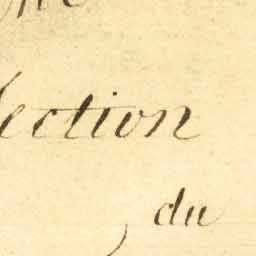 ection
, du